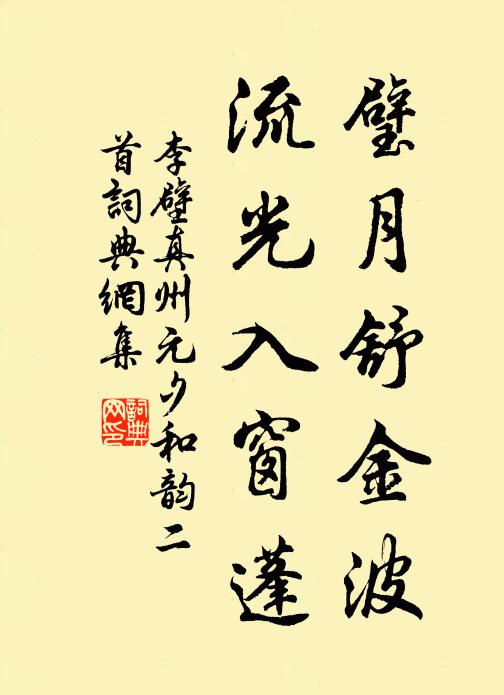 璧月舒金波
流光入窗蓬
李壁真州元夕和韵二
首词典網集
詞典
网印